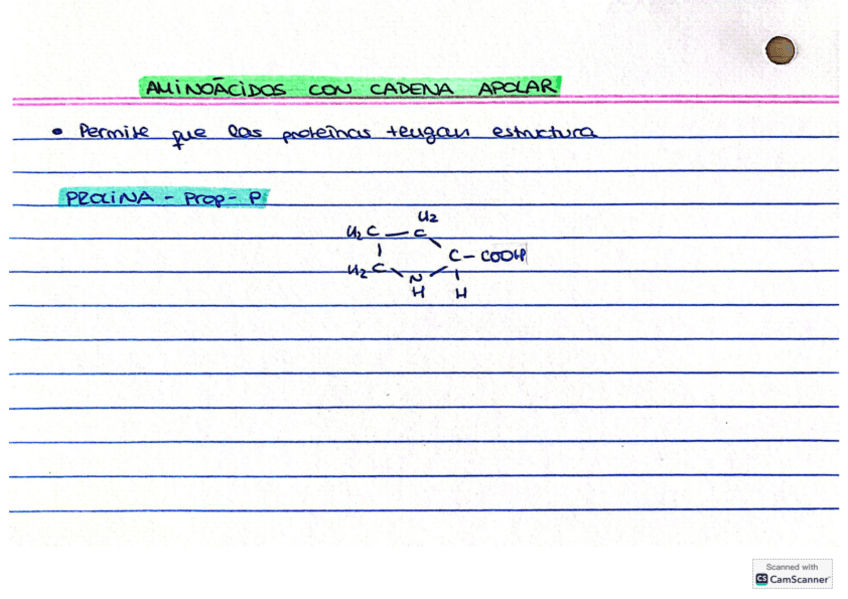 AMINOÁCIDOS CON CADENA APOLAR
• Permite que las proteínas tengan estructura
PROLINA - Prop - P
H₂
H₂C — C
C — COOH
H₂C
N
H H
Scanned with
CS CamScanner